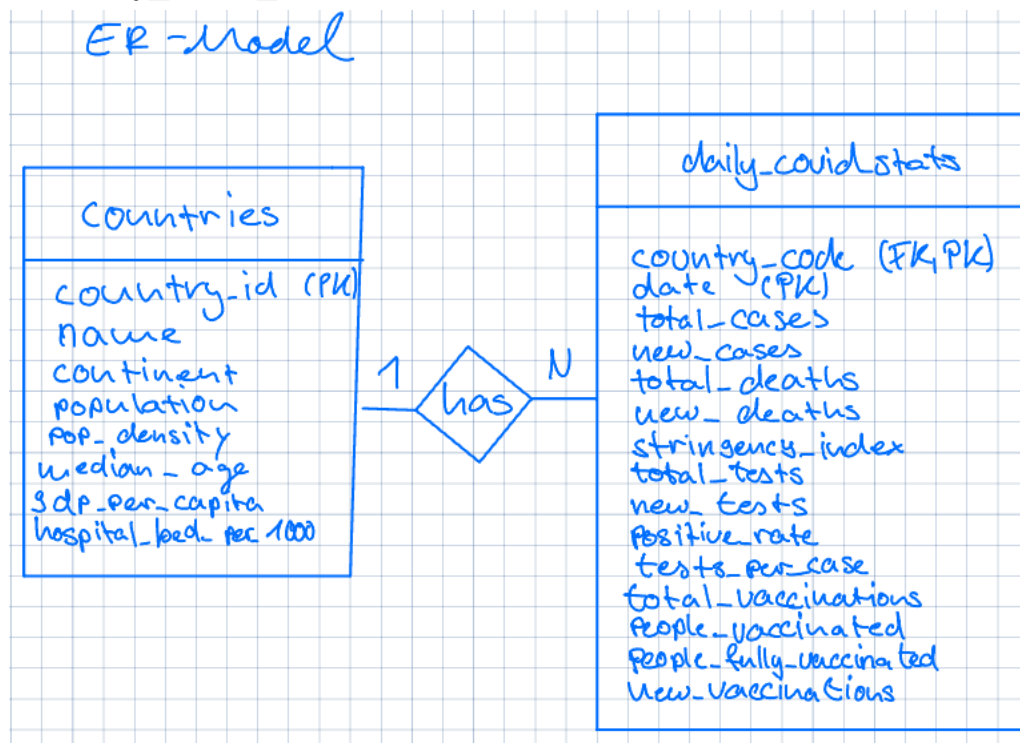 ER-Model
countries
country_id (PK)
name
continent
population
pop_density
median_age
gdp_per_capita
hospital_bed_per 1000
1
has
N
daily_covid_stats
country_code (FK, PK)
date (PK)
total_cases
new_cases
total_deaths
new_deaths
stringency_index
total_tests
new_tests
positive_rate
tests_per_case
total_vaccinations
people_vaccinated
people_fully_vaccinated
new_vaccinations